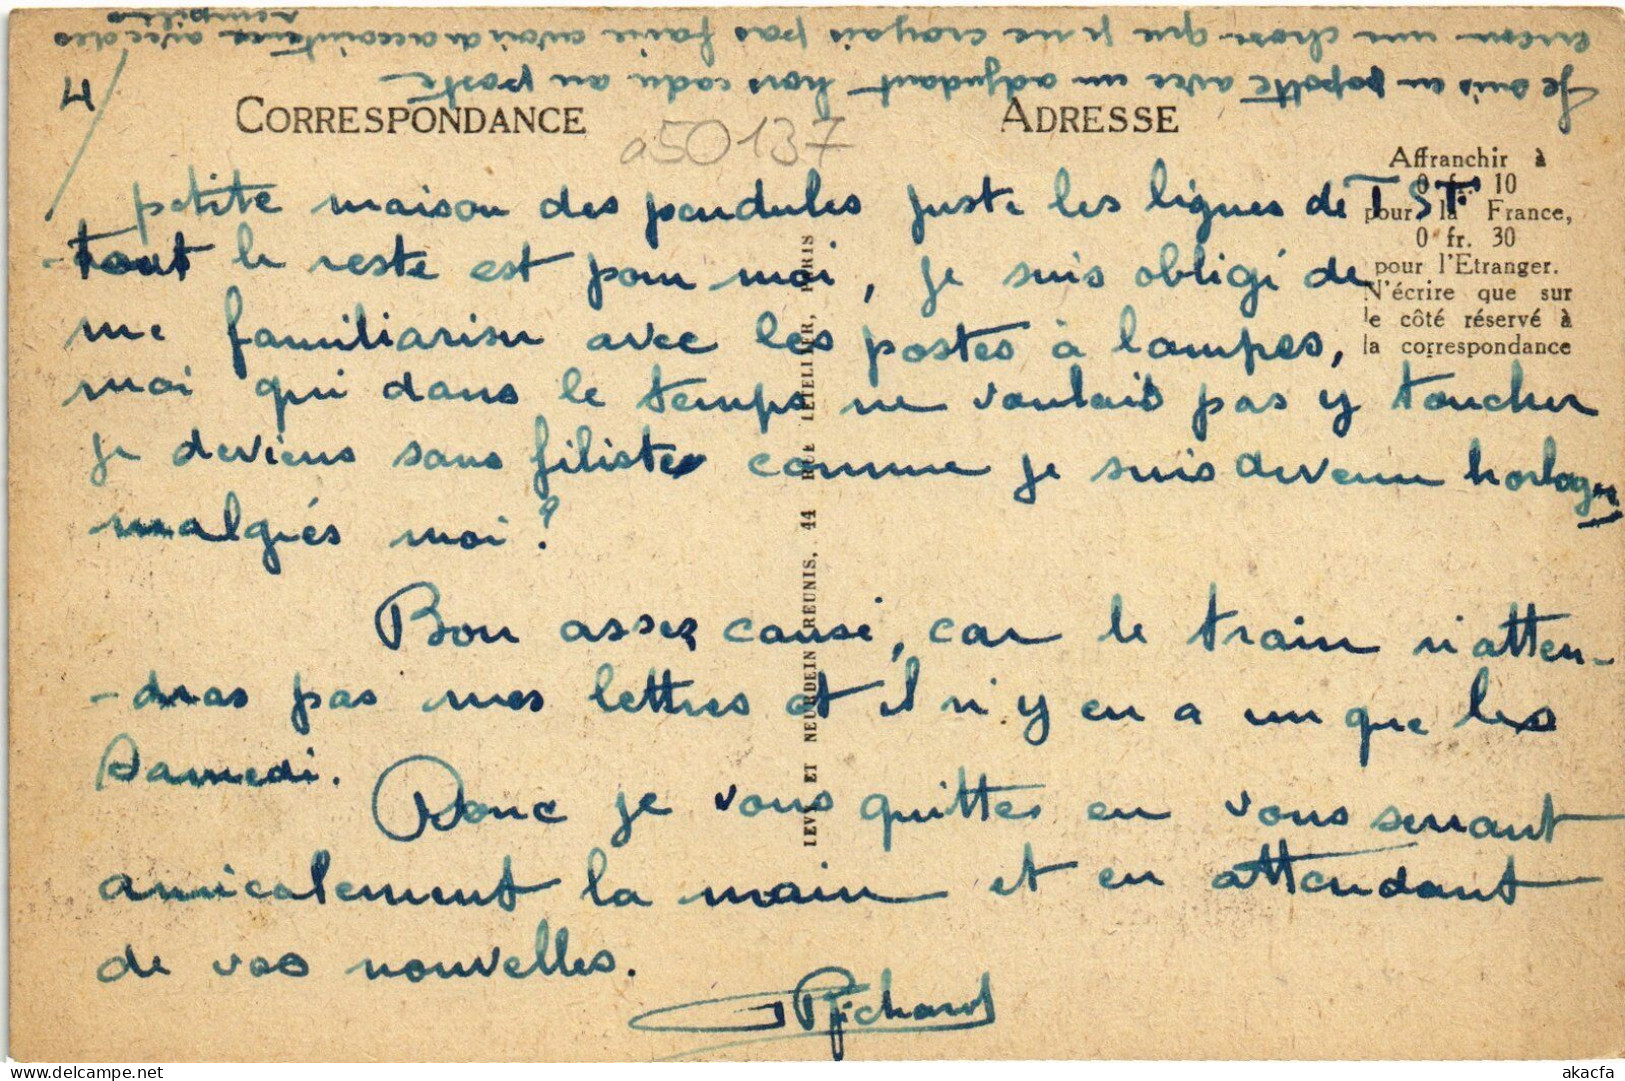 Je suis en popotte avec un adjudant hors cadre au poste
encore une chose que je ne croyais pas faire avoir des accointances avec des
rempilés
4/
CORRESPONDANCE
ADRESSE
a50137
Affranchir à
0 fr. 10
pour la France,
0 fr. 30
pour l'Etranger.
N'écrire que sur
le côté réservé à
la correspondance
petite maison des pendules juste les lignes de T S F.
- tout le reste est pour moi, je suis obligé de
me familiariser avec les postes à lampes,
moi qui dans le temps ne voulais pas y toucher
je deviens sans filiste comme je suis devenu horloger
malgrés moi ?
Bon assez causé, car le train n'atten-
-dras pas mes lettres et il n'y en a un que les
Samedi.
Donc je vous quittes en vous serrant
amicalement la main et en attendant
de vos nouvelles.
Richard
LEVY ET NEURDEIN REUNIS, 44 RUE LETELLIER, PARIS
delcampe.net
akacfa